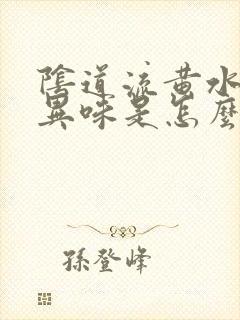 陰道流黄水
異味是怎麽
孫登峰